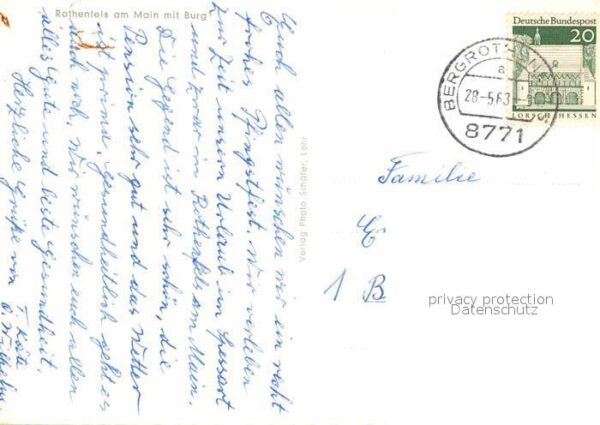 Rothenfels am Main mit Burg
Euch allen wünschen wir ein recht
frohes Pfingstfest. Wir verleben
zur Zeit unseren Urlaub im Spessart
und zwar in Rothenfels am Main.
Die Gegend ist sehr schön, die
Pension sehr gut und das Wetter
ist prima. Gesundheitlich geht es
auch. Wir wünschen euch allen
alles Gute und beste Gesundheit.
Herzliche Grüße von
T. Käte
O. Wilhelm.
Verlag Photo Schäfer, Lohr
Deutsche Bundespost
20
LORSCH HESSEN
BERGROTHENFELS
a
28.-5.63
8771
Familie
E
1 B
privacy protection
Datenschutz